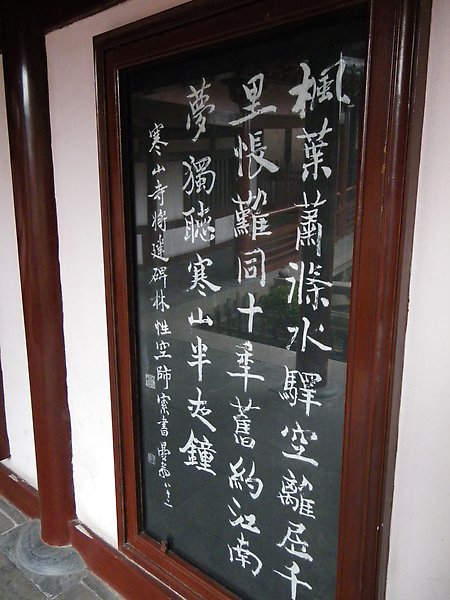 楓葉蕭條水驛空離居千
里悵難同十年舊約江南
夢獨聽寒山半夜鐘
寒山寺將建碑林性空師索書